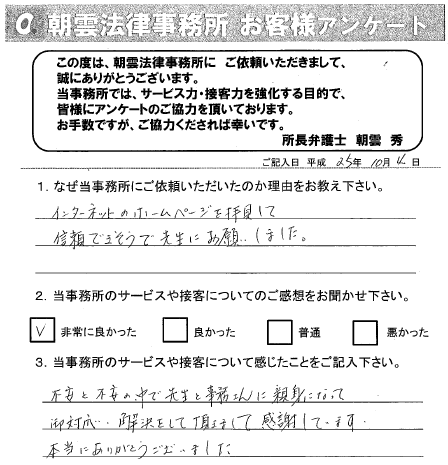 朝雲法律事務所 お客様アンケート
この度は、朝雲法律事務所に ご依頼いただきまして、
誠にありがとうございます。
当事務所では、サービス力・接客力を強化する目的で、
皆様にアンケートのご協力を頂いております。
お手数ですが、ご協力くだされば幸いです。
所長弁護士 朝雲 秀
ご記入日 平成 25年 10月 4日
1. なぜ当事務所にご依頼いただいたのか理由をお教え下さい。
インターネットのホームページを拝見して
信頼できそうで先生にお願いしました。
2. 当事務所のサービスや接客についてのご感想をお聞かせ下さい。
✓ 非常に良かった 良かった 普通 悪かった
3. 当事務所のサービスや接客について感じたことをご記入下さい。
不安と不安の中で先生と事務さんに親身になって
御対応、解決をして頂きまして感謝しています。
本当にありがとうございました